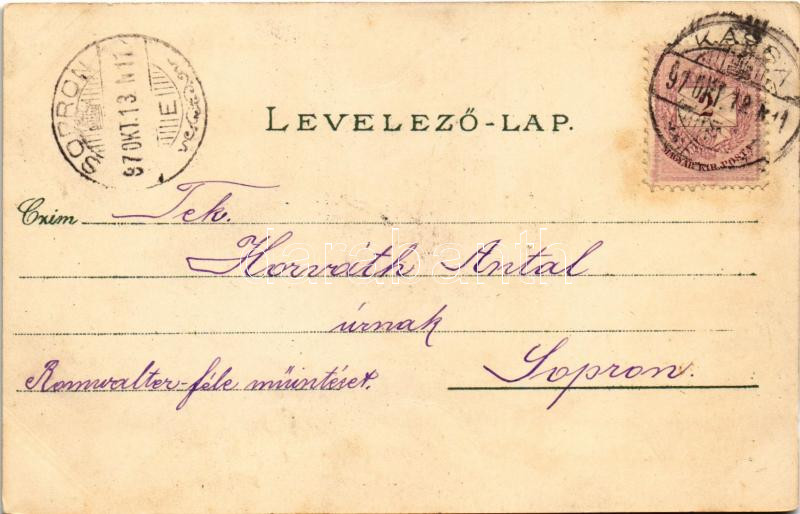 SOPRON
97 OKT. 13 N 11
E
KASSA
97 OKT. 12 N 11
2
MAGYAR KIR. POSTA
LEVELEZŐ-LAP.
Czim Tek.
Horváth Antal
úrnak
Romwalter-féle műintézet.
Sopron.